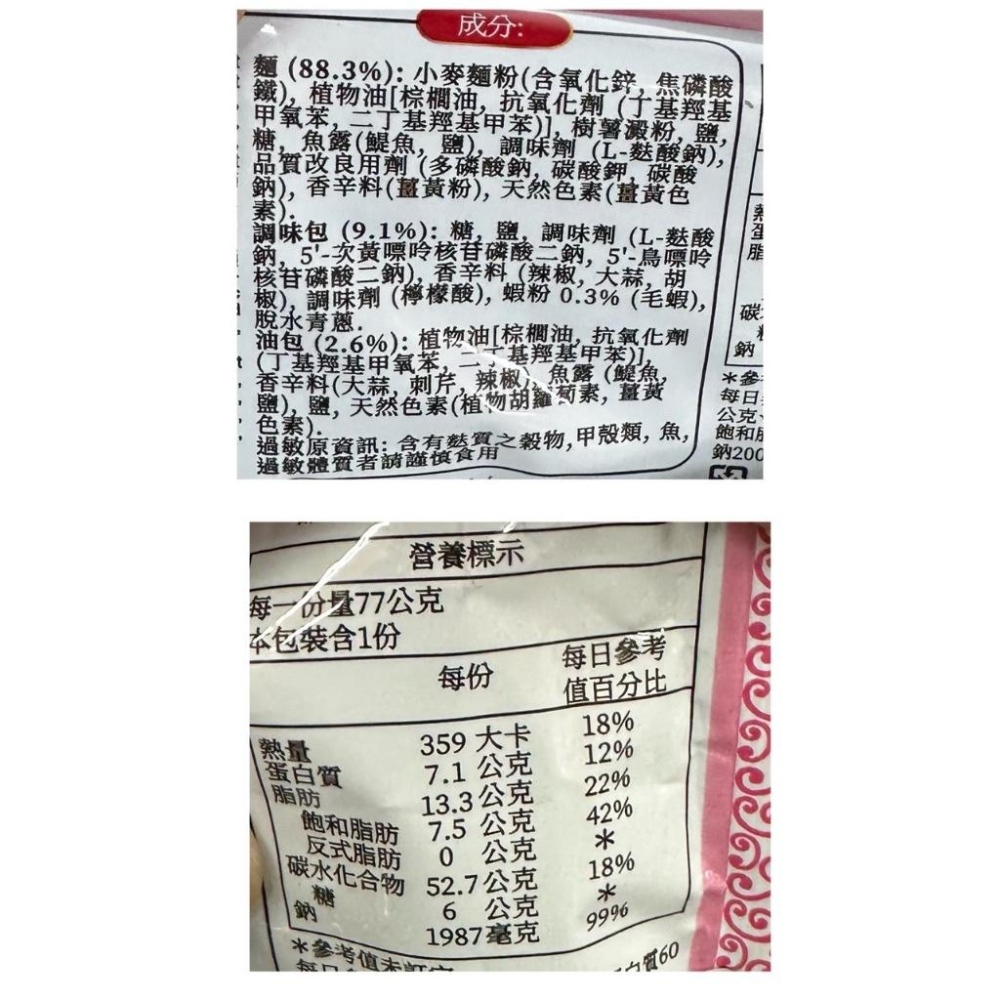 成分:
麵 (88.3%): 小麥麵粉(含氧化鋅, 焦磷酸
鐵), 植物油[棕櫚油, 抗氧化劑 (丁基羥基
甲氧苯, 二丁基羥基甲苯)], 樹薯澱粉, 鹽,
糖, 魚露(鯷魚, 鹽), 調味劑 (L-麩酸鈉),
品質改良用劑 (多磷酸鈉, 碳酸鉀, 碳酸
鈉), 香辛料(薑黃粉), 天然色素(薑黃色
素).
調味包 (9.1%): 糖, 鹽, 調味劑 (L-麩酸
鈉, 5'-次黃嘌呤核苷磷酸二鈉, 5'-鳥嘌呤
核苷磷酸二鈉), 香辛料 (辣椒, 大蒜, 胡
椒), 調味劑 (檸檬酸), 蝦粉 0.3% (毛蝦),
脫水青蔥.
油包 (2.6%): 植物油[棕櫚油, 抗氧化劑
(丁基羥基甲氧苯, 二丁基羥基甲苯)],
香辛料(大蒜, 刺芹, 辣椒), 魚露 (鯷魚,
鹽), 鹽, 天然色素(植物胡蘿蔔素, 薑黃
色素).
過敏原資訊: 含有麩質之穀物,甲殼類, 魚,
過敏體質者請謹慎食用
熱
蛋
脂
碳
鈉
*參
每日
公克
飽和
鈉200
營養標示
每一份量77公克
本包裝含1份
每份 每日參考
值百分比
熱量 359 大卡 18%
蛋白質 7.1 公克 12%
脂肪 13.3公克 22%
飽和脂肪 7.5 公克 42%
反式脂肪 0 公克 *
碳水化合物 52.7公克 18%
糖 6 公克 *
鈉 1987毫克 99%
*參考值未訂定
每日 白質60